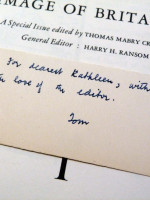 IMAGE OF BRITA
A Special Issue edited by THOMAS MABRY CR
General Editor : HARRY H. RANSOM
For dearest Kathleen, with
love of the editor.
Tom